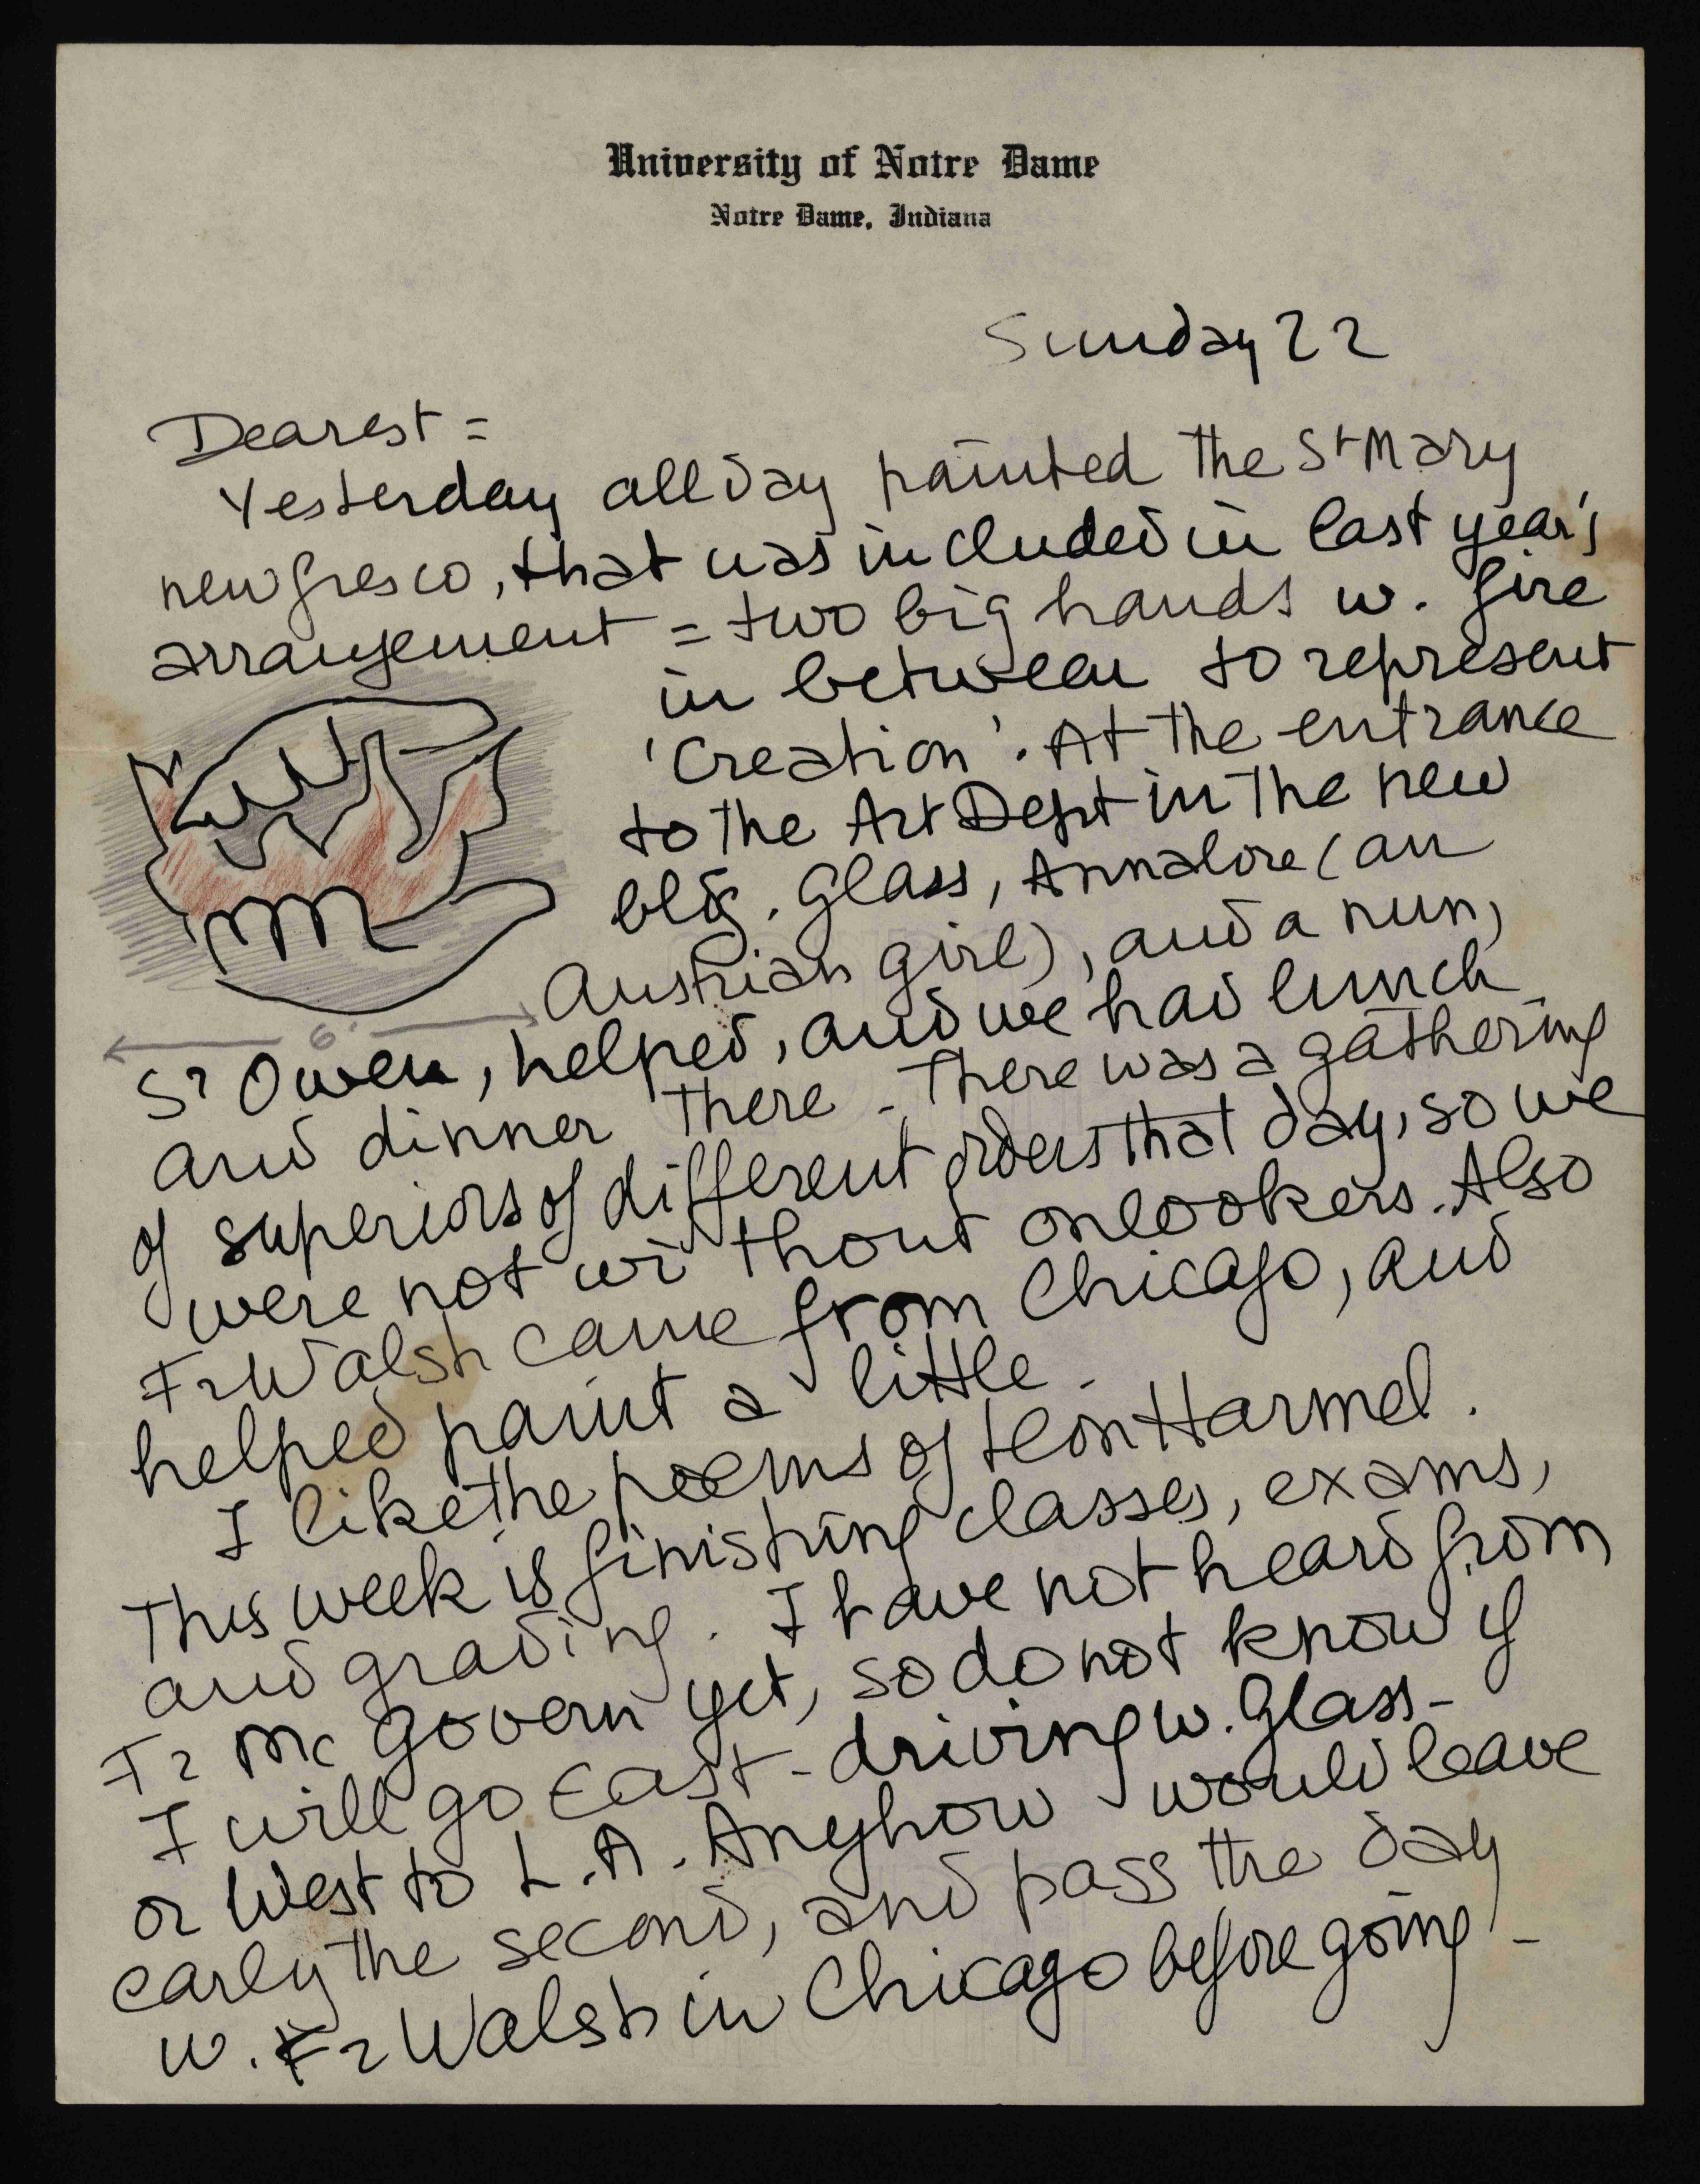 University of Notre Dame
Notre Dame, Indiana
Sunday 22
Dearest =
Yesterday all day painted the St Mary
new fresco, that was included in last year's
arrangement = two big hands w. fire
in between to represent
'Creation'. At the entrance
to the Art Dept in the new
bldg. Glass, Annalore (an
Austrian girl), and a nun,
6'
Sr Owen, helped, and we had lunch
and dinner there - There was a gathering
of superiors of different orders that day, so we
were not without onlookers. Also
Fr Walsh came from Chicago, and
helped paint a little.
I like the poems of Leon Harmel.
This week is finishing classes, exams,
and grading. I have not heard from
Fr McGovern yet, so do not know if
I will go East - driving w. Glass -
or West to L.A. Anyhow would leave
early the second, and pass the day
w. Fr Walsh in Chicago before going -